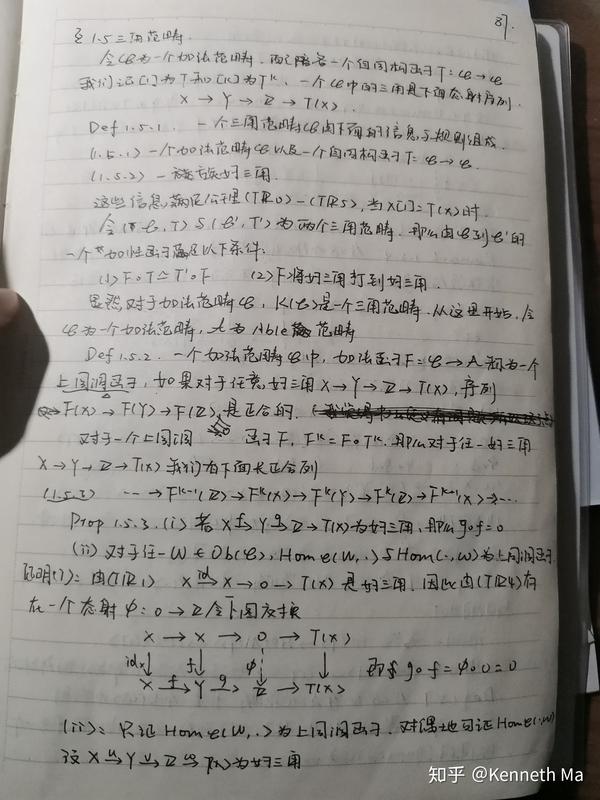 37.
§ 1.5 三角范畴.
令𝒞为一个加法范畴. 配备一个自同构函子 T: 𝒞 → 𝒞
我们记[1]为T和[k]为Tᵏ. 一个𝒞中的三角是下面态射序列.
X → Y → Z → T(X).
Def 1.5.1. 一个三角范畴𝒞由下面的信息与规则组成.
(1.5.1) 一个加法范畴𝒞以及一个自同构函子T: 𝒞 → 𝒞.
(1.5.2) 一族好三角.
这些信息满足公理(TR0) - (TR5), 当X[1] = T(X)时.
令(𝒞, T)与(𝒞', T')为两个三角范畴. 那么由𝒞到𝒞'的
一个加性函子满足以下条件:
(1) F∘T ≃ T'∘F (2) F将好三角打到好三角.
显然对于加法范畴𝒞, K(𝒞)是一个三角范畴. 从这里开始, 令
𝒞为一个加法范畴, A为Abel范畴
Def 1.5.2. 一个加法范畴𝒞中, 加法函子F: 𝒞 → A 称为一个
上同调函子, 如果对于任意好三角 X → Y → Z → T(X), 序列
F(X) → F(Y) → F(Z) 是正合的.
对于一个上同调函子F, Fᵏ = F∘Tᵏ. 那么对于任一好三角
X → Y → Z → T(X) 我们有下面长正合列
(1.5.3) ··· → Fᵏ⁻¹(Z) → Fᵏ(X) → Fᵏ(Y) → Fᵏ(Z) → Fᵏ⁺¹(X) → ···
Prop 1.5.3. (i) 若 X f→ Y g→ Z → T(X)为好三角, 那么 g∘f = 0
(ii) 对于任一 W ∈ Ob(𝒞), Hom𝒞(W, ·)与Hom(·, W)为上同调函子.
证明(i): 由(TR1) X id→ X → 0 → T(X) 是好三角, 因此由(TR4)存
在一个态射 φ: 0 → Z 令下图交换
X → X → 0 → T(X)
idx↓ f↓ φ↓ ↓
X f→ Y g→ Z → T(X) 即 g∘f = φ∘0 = 0
(ii): 只证 Hom𝒞(W, ·)为上同调函子. 对偶地可证Hom𝒞(·, W)
设 X u→ Y v→ Z w→ T(X)为好三角
知乎 @Kenneth Ma